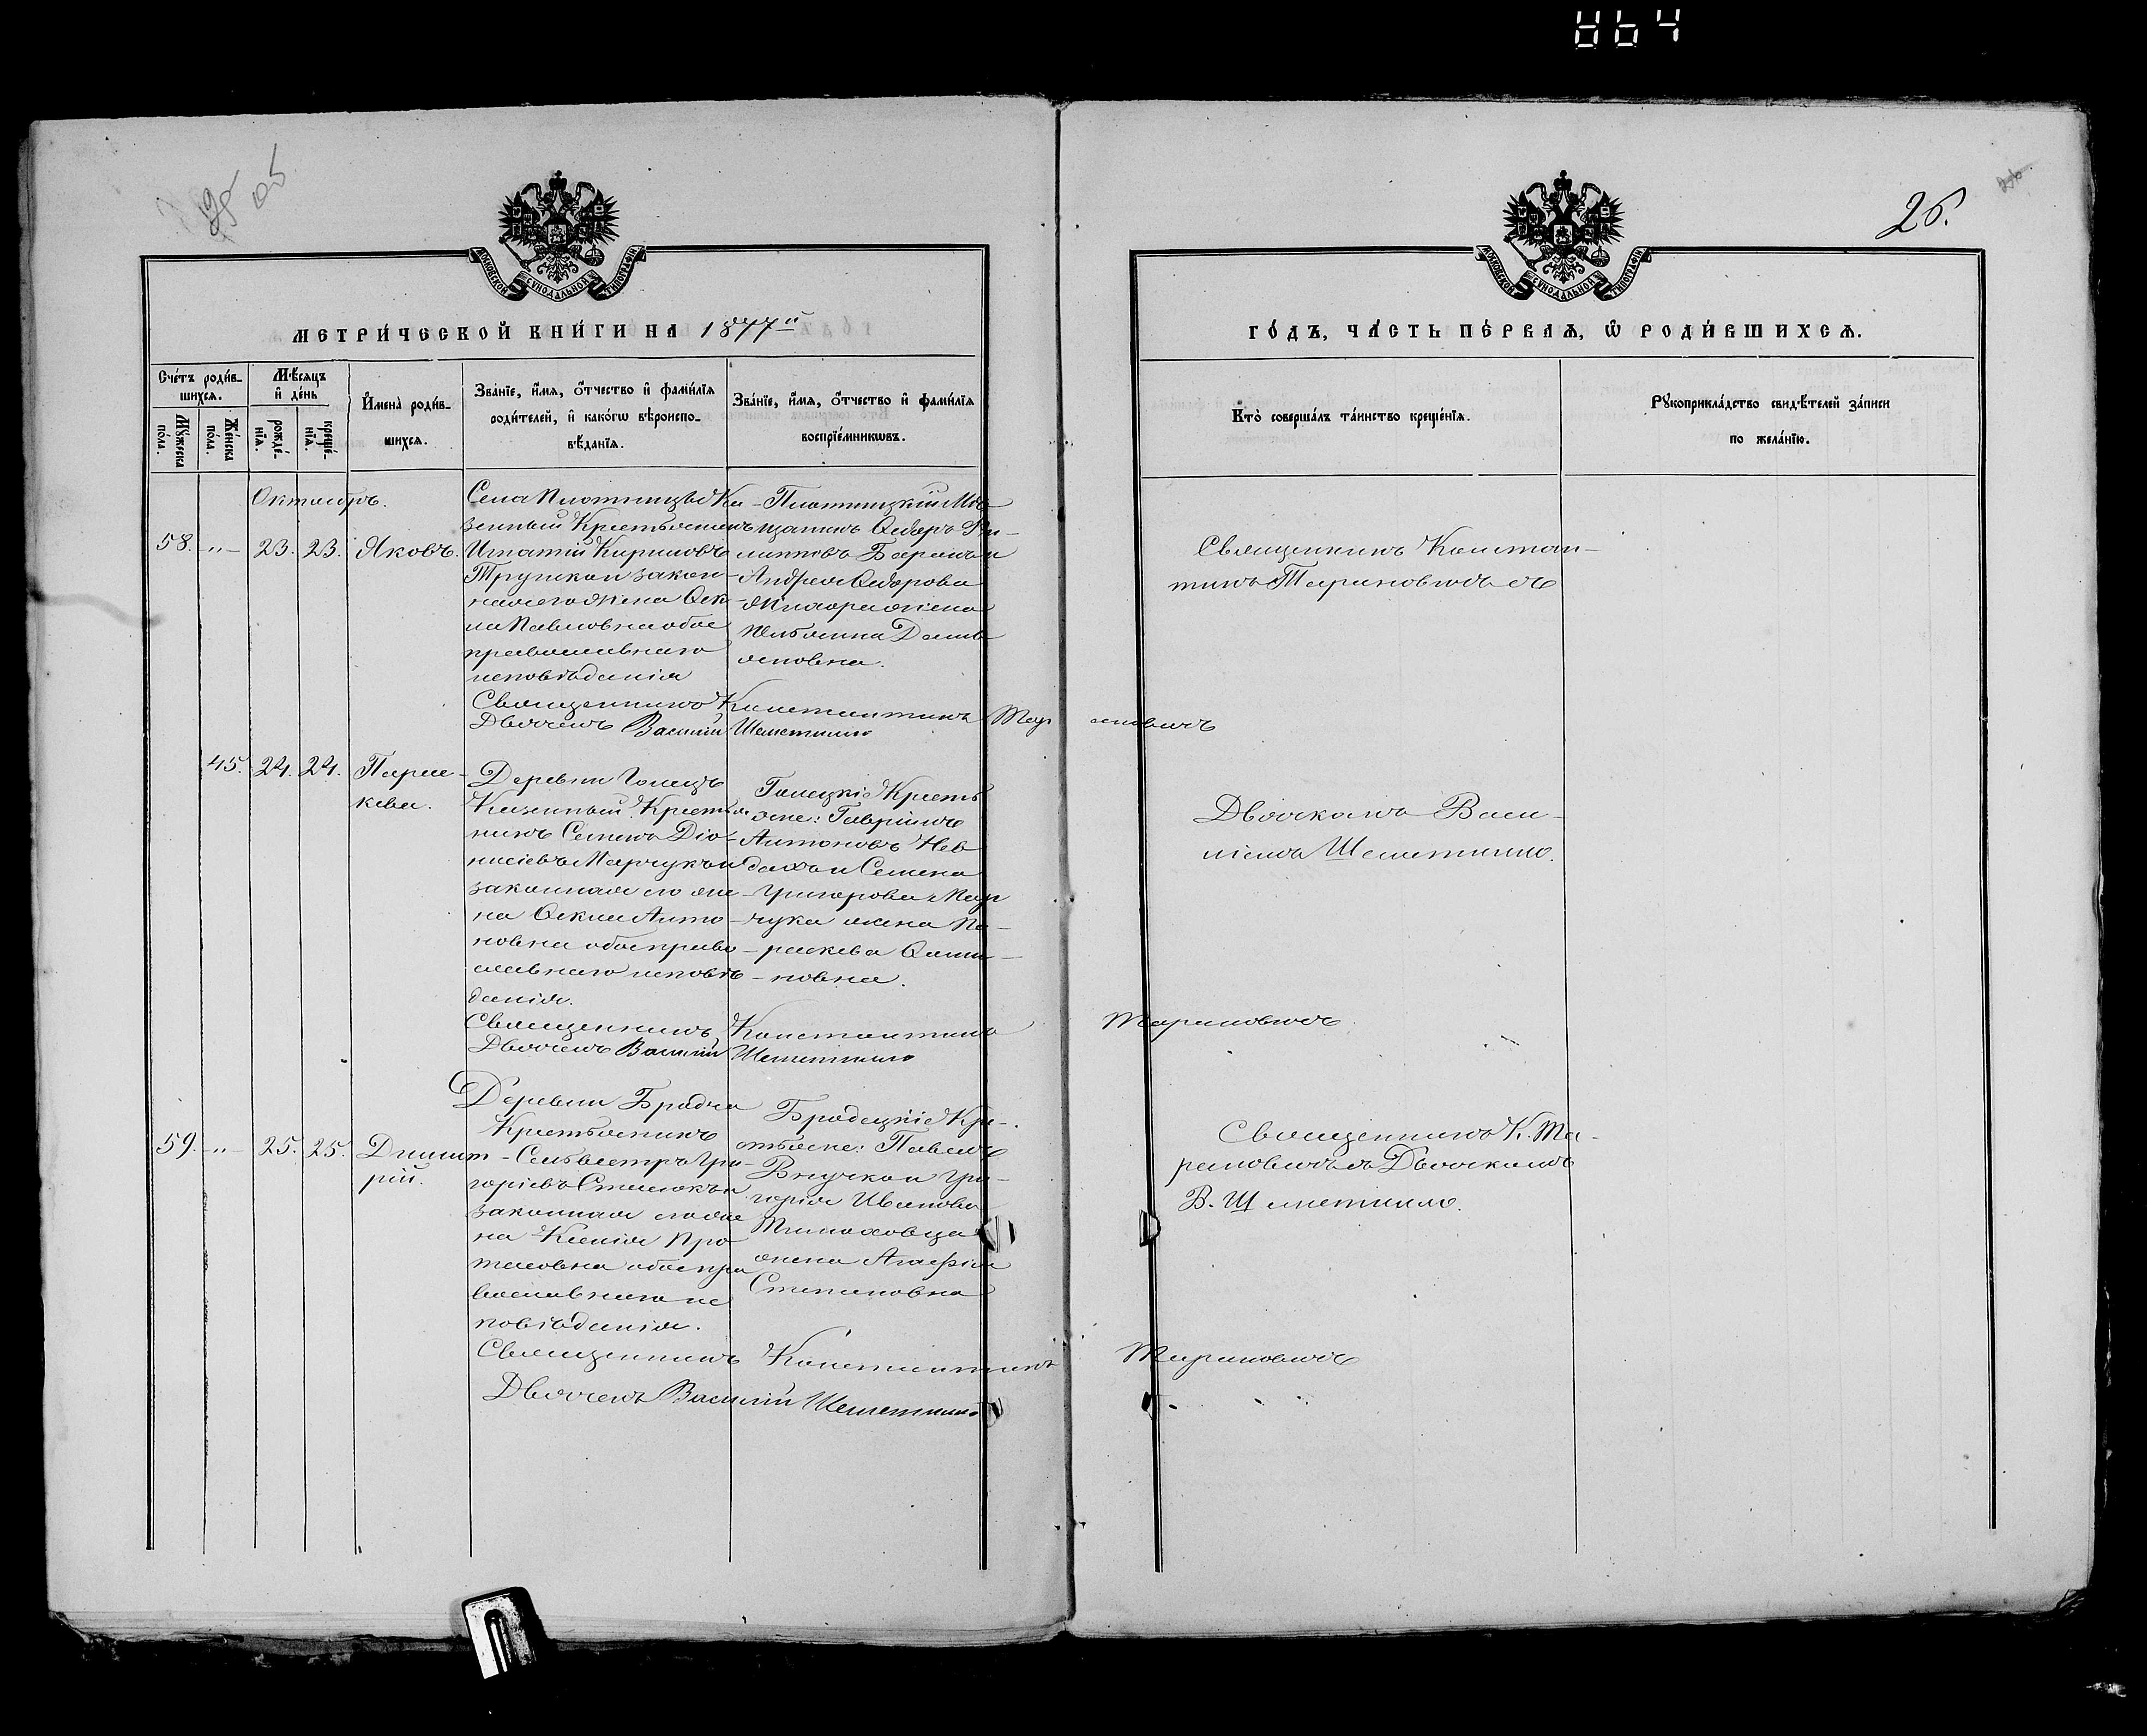 464
26.
МОСКОВСКОЙ СѴНОДАЛЬНОЙ ТИПОГРАФІИ
МОСКОВСКОЙ СѴНОДАЛЬНОЙ ТИПОГРАФІИ
МЕТРИ́ЧЕСКОЙ КНИ́ГИ НА 1877й
ГО́ДЪ, ЧА́СТЬ ПЕ́РВАѦ, Ѿ РОДИ́ВШИХСѦ.
Сче́тъ роди́в-
шихсѧ.
Мꙋ́жеска
по́ла.
Же́нска
по́ла.
Мѣ́сѧцъ
и҆ де́нь
рожде́-
нїѧ.
креще́-
нїѧ.
И҆мена̀ роди́в-
шихсѧ.
Зва́нїе, и҆́мѧ, ѻ҆́тчество и҆ фами́лїѧ
роди́телей, и҆ како́гѡ вѣроиспо-
вѣ́данїѧ.
Зва́нїе, и҆́мѧ, ѻ҆́тчество и҆ фами́лїѧ
воспрїе́мникѡвъ.
Кто̀ соверша́лъ та́инство креще́нїѧ.
Рꙋкоприкла́дство свидѣ́телей за́писи
по жела́нїю.
Октябрь.
58. -„- 23. 23. Яковъ.
Села Плотницы Ка-
зенный Крестьянинъ
Игнатій Кириловъ
закон-
жена Ѳек-
ла Павловна обое
православнаго
исповѣданія
Плотницкій Мѣ-
щанинъ Ѳедоръ Фи-
липповъ и
Андрея Ѳедорова
жена
Ульянна Демь-
яновна.
Священникъ Констан-
тинъ Тарановичъ съ
Священникъ Константинъ Тарановичъ
Дьячекъ Василій Шеметилло
45. 24. 24. Парас-
кева.
Деревни Голецъ
Казенный Крестья
нинъ Семенъ Діо-
нисіевъ Марчукъ и
законная его же-
на Ѳекла Анто-
новна обое право-
славнаго исповѣ-
данія.
Голецкіе Кресть
яне: Гавріилъ
Антоновъ Нев
дахъ и Семена
Григорова Мар
чука жена Па-
раскева
новна.
Дьячкомъ Васи-
ліемъ Шеметилло.
Священникъ Константинъ Тарановичъ
Дьячекъ Василій Шеметилло
59. -„- 25. 25. Димит
рій.
Деревни Бродча
Крестьянинъ
Сильвестръ Гри-
горіевъ и
законная его же
на Ксенія Про
тасовна обое пра
вославнаго ис
повѣданія.
Бродецкіе Кре-
стьяне: Павелъ
Внучко и Гри-
горія Иванова
жена Агафія
Степановна
Священникъ К. Та-
рановичъ съ Дьячкомъ
В. Шеметилло.
Священникъ Константинъ Тарановичъ
Дьячекъ Василій Шеметилло